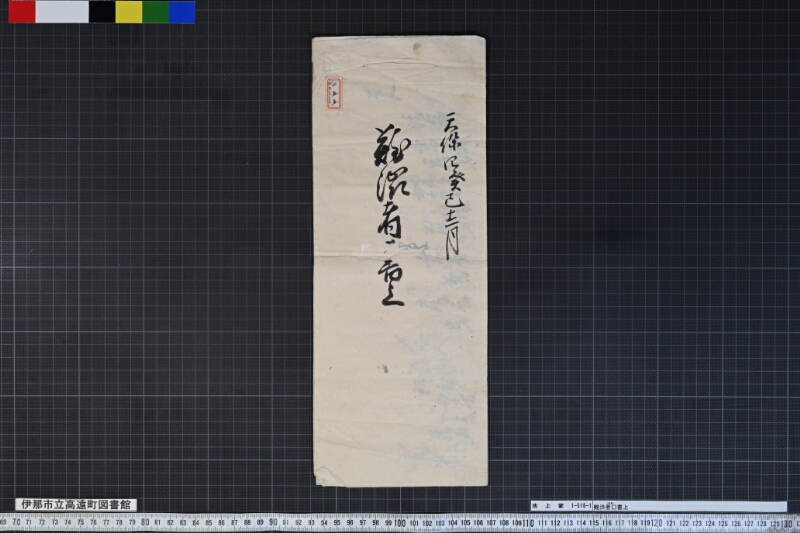 天保四癸巳十二月
難渋者書上
伊那市立高遠町図書館
池上家 1-510-1 難渋者□書上